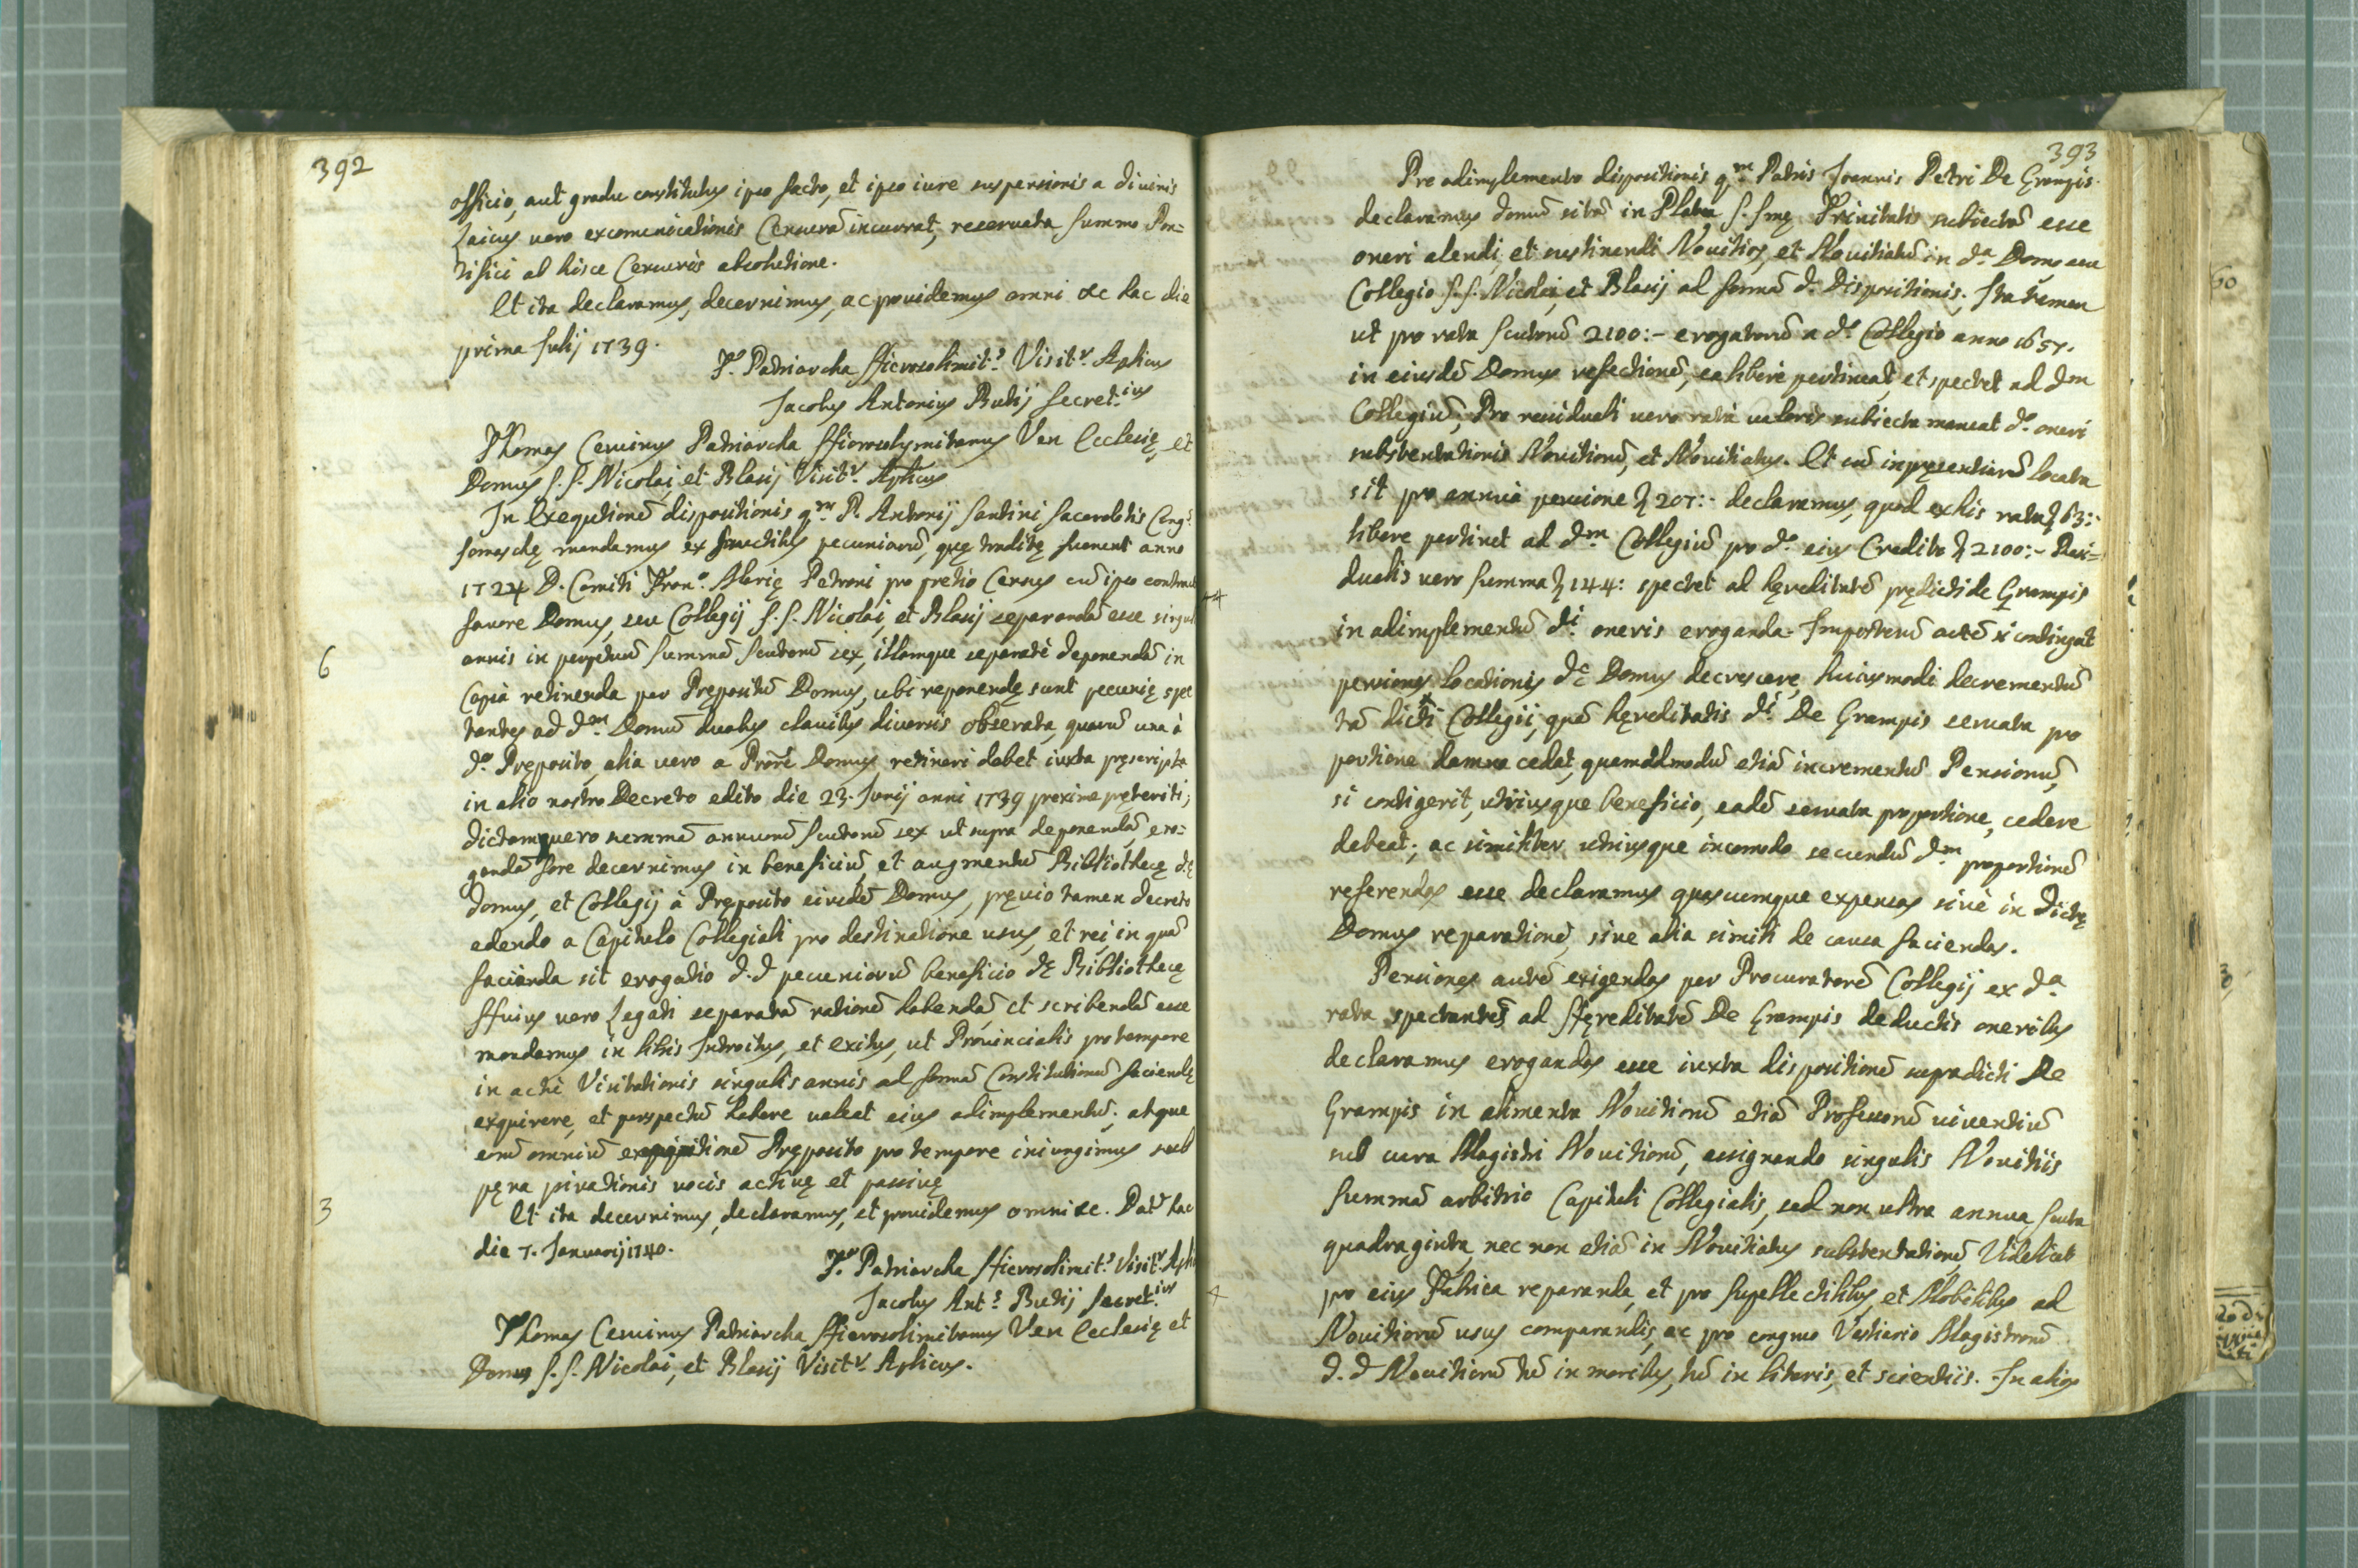 392
officio, aut gradu constitutus ipso facto, et ipso iure suspensionis a diuinis
Laicus uero excomunicationis Censurã incurrat, reseruata Summo Pon=
tifici ab hisce Censuris absolutione.
Et ita declaramus, decernimus, ac prouidemus omni &c hac die
prima Julij 1739.
Tˢ. Patriarcha Hierosolimitˢ. Visitʳ. Aplicus
Jacobus Antonius Butij Secretⁱᵘˢ
Thomas Ceruinus Patriarcha Hierosolymitanus Ven Ecclesię, et
Domus S. S. Nicolai, et Blasij Visitʳ. Aplicus
In Exequtionẽ dispositionis qᵐ. P. Antonij Santini Sacerdotis Congˢ
Somaschę mandamus ex fructibus pecuniarũ, quę traditę fuerunt anno
1724 D. Comiti Franᵒ. Marię Petroni pro pretio Census cũ ipso contracti
fauore Domus, seu Collegij S. S. Nicolai, et Blasij separandã esse singulis
6
annis in perpetuũ summã scutorũ sex, illamque separatè deponendã in
Capsa retinenda per Prępositũ Domus, ubi reponendę sunt pecunię spec
tantes ad dᵐ. Domũ duabus clauibus diuersis obserata, quarũ una à
dᵒ. Pręposito, alia uero a Prõre Domus retineri debet iuxta pręscripta
in alio nostro Decreto edito die 23. Junij anni 1739 proximè pręteriti;
dictamque uero summã annuorũ scutorũ sex ut supra deponendã, ero=
gandã fore decernimus in beneficiũ, et augmentũ Bibliothecę dę
domus, et Collegij à Pręposito eiusdẽ Domus, pręuio tamen decreto
edendo a Capitulo Collegiali pro destinatione usus, et rei, in quã
facienda sit erogatio d. d pecuniarũ beneficio dę Bibliothecę
Huius uero Legati separatã rationẽ habendã, et scribendã esse
mandamus in libris Introitus, et exitus, ut Prouincialis pro tempore
in actu Visitationis singulis annis ad formã Constitutionũ faciendę
exquirere, et perspectũ habere ualeat eius adimplementũ; atque
eorũ omniũ exequutionẽ Pręposito pro tempore iniungimus sub
pęna priuationis uocis actiuę et passiuę
3
Et ita decernimus, declaramus, et prouidemus omni &c. Datᵗ hac
die 7. Januarij 1740.
Tˢ. Patriarcha Hierosolimitˢ Visitʳ. Apli
Jacobus Antˢ. Butij Secretⁱᵘˢ
Thomas Ceruinus Patriarcha Hierosolimitanus Ven Ecclesię et
Domus S. S. Nicolai, et Blasij Visitʳ. Aplicus.
393
Pro adimplemento dispositionis qᵐ Patris Joannis Petri De Grampis
declaramus domũ sitã in Platea S. Smę Trinitatis subiectã esse
oneri alendi, et sustinendi Nouitios, et Nouitiatũ in dᵃ Domo seu
Collegio S. S. Nicolai, et Blasij ad formã dᵉ Dispositionis. Ita tamen
ut pro rata Scutorũ 2100:- erogatorũ a dᵒ Collegio anno 1657.
in eiusdẽ Domus refectionẽ, ea libere pertineat, et spectet ad dᵐ
Collegiũ; Pro residuali uero rata ualoris subiecta maneat dᵒ oneri
substentationis Nouitiorũ, et Nouitiatus. Et cũ inpręsentiarũ locata
sit pro annua pensione ∇ 207:- declaramus, quod ex his rata ∇ 63:-
libere pertinet ad dᵐ Collegiũ pro dᵒ eius Credito ∇ 2100:- Resi=
dualis uero summa ∇ 144: spectet ad hęreditatẽ pręlicti de Grampis
in adimplementũ dⁱ oneris eroganda. Imposterũ autẽ si contingat
pensiones locationis dę Domus decrescere, huiusmodi decrementũ
tã dicti Collegij, quã hęreditatis dⁱ De Grampis seruata pro
portione damna cedat, quemadmodũ etiã incrementũ Pensionũ,
si contigerit, utriusque beneficio, eadẽ seruata proportione, cedere
debeat; ac similiter utriusque incomodo secundũ dᵐ proportionẽ
referendas esse declaramus quascumque expensas siuè in dictę
Domus reparationẽ, siue alia simili de causa faciendas.
Pensiones autẽ exigendas per Procuratorẽ Collegij ex dᵃ
rata spectantes ad Hęreditatẽ De Grampis deductis oneribus
declaramus erogandas esse iuxta dispositionẽ supradicti De
Grampis in alimenta Nouitiorũ etiã Professorũ uiuentiũ
sub cura Magistri Nouitiorũ, assignando singulis Nouitiis
summã arbitrio Capituli Collegialis, sed non ultra annua scuta
quadraginta, nec non etiã in Nouitiatus substentationẽ, Videlicet
pro eius Fabrica reparanda, et pro supellectilibus, et Mobilibus ad
Nouitiorũ usus comparandis, ac pro congruo Vestiario Magistrorũ
d. d Nouitiorũ tũ in moribus, tũ in literis, et scientiis. In alios